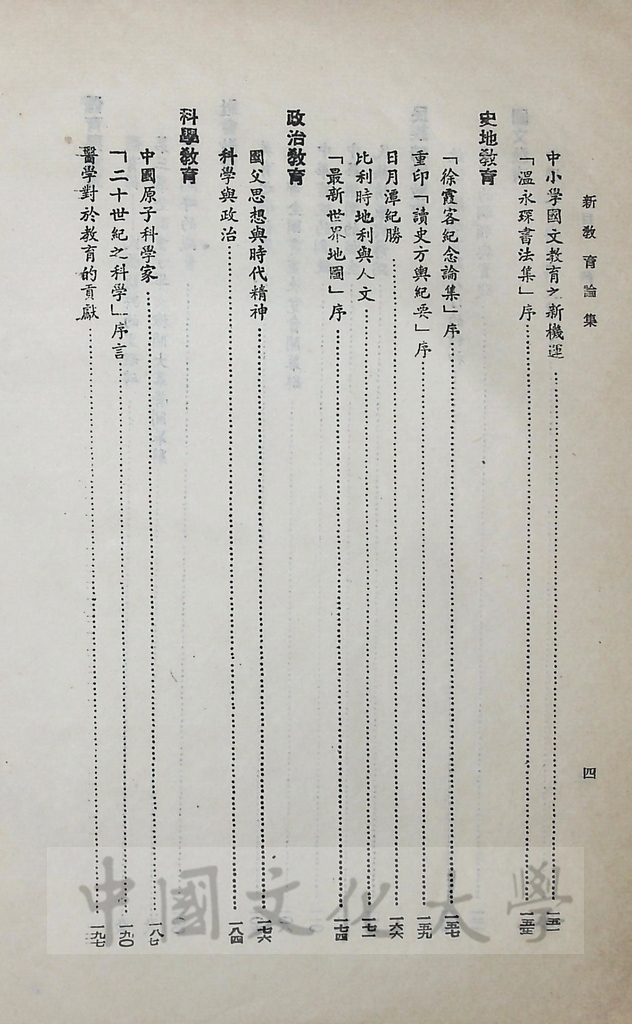 新教育論集
四
中小學國文教育之新機運……一五一
「溫永琛書法集」序……一五五
史地教育
「徐霞客紀念論集」序……一五七
重印「讀史方輿紀要」序……一五九
日月潭紀勝……一六六
比利時地利與人文……一七一
「最新世界地圖」序……一七四
政治教育
國父思想與時代精神……一七六
科學與政治……一八四
科學教育
中國原子科學家……一八七
「二十世紀之科學」序言……一九〇
醫學對於教育的貢獻……一九七
中國文化大學